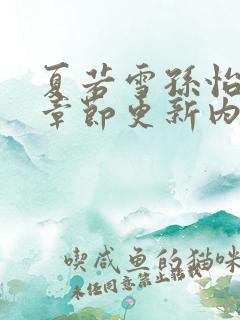 夏若雪孙怡
章节更新内
喫咸鱼的猫咪
未经同意禁止转载